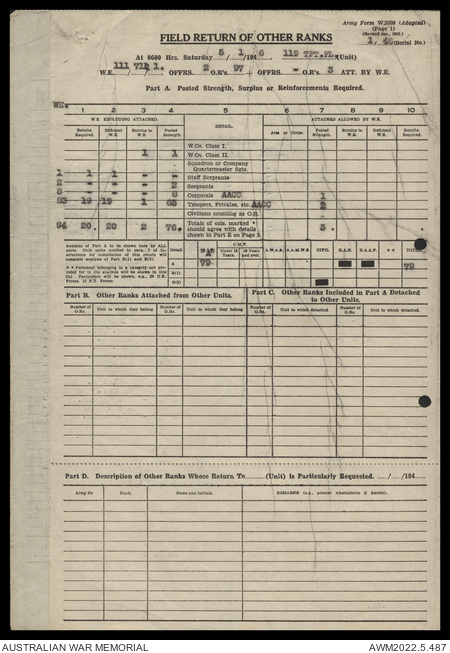 Army Form W.3009 (Adapted)
(Page 1)
(Revised Jan., 1943.)
FIELD RETURN OF OTHER RANKS
1/46 (Serial No.)
At 0600 Hrs. Saturday 5/1/1946 119 TPT.PL. (Unit)
W.E. 111 OFFRS. 2 O.R's 97 + OFFRS. - O.R's 3 ATT. BY W.E.
Part A. Posted Strength, Surplus or Reinforcements Required.
WE.
1 2 3 4 5 6 7 8 9 10
W.E. EXCLUDING ATTACHED. ATTACHED ALLOWED BY W.E.
Reinfts Required. Deficient W.E. Surplus to W.E. Posted Strength. DETAIL. Arm or Corps. Posted Strength. Surplus to W.E. Deficient W.E. Reinfts Required.
W.Os. Class I.
1 1 W.Os. Class II.
Squadron or Company Quartermaster Sgts.
1 1 1 - - Staff Sergeants
2 - - - 2 Sergeants
8 - - - 8 Corporals AACC 1
83 19 19 1 65 Troopers, Privates, etc. AACC 2
Civilians counting as O.R.
94 20. 20 2 76. Totals of cols. marked * should agree with details shown in Part E on Page 2 3 .
Analysis of Part A to be shown here by ALL units. Only units entitled to para. 7 of instructions for compilation of this return will complete analysis of Part B(1) and B(2).
Detail C.M.F. Under 19 Years. 19 Years and over. A.W.A.S. A.A.M.W.S. CIVIL R.A.N. R.A.A.F. * * TOTAL
A 79 79
B(1)
B(2)
* * Personnel belonging to a category not provided for in the analysis will be shown in this Col. Particulars will be shown, e.g., 29 U.K. Forces. 10 N.Z. Forces.
Part B. Other Ranks Attached from Other Units.
Part C. Other Ranks Included in Part A Detached to Other Units.
Number of O.Rs. Unit to which they belong Number of O.Rs. Unit to which they belong Number of O.Rs. Unit to which detached. Number of O.Rs. Unit to which detached.
Part D. Description of Other Ranks Whose Return To (Unit) is Particularly Requested. / /194
Army No Rank. Name and Initials. REMARKS (e.g., present whereabouts if known).
AUSTRALIAN WAR MEMORIAL AWM2022.5.487